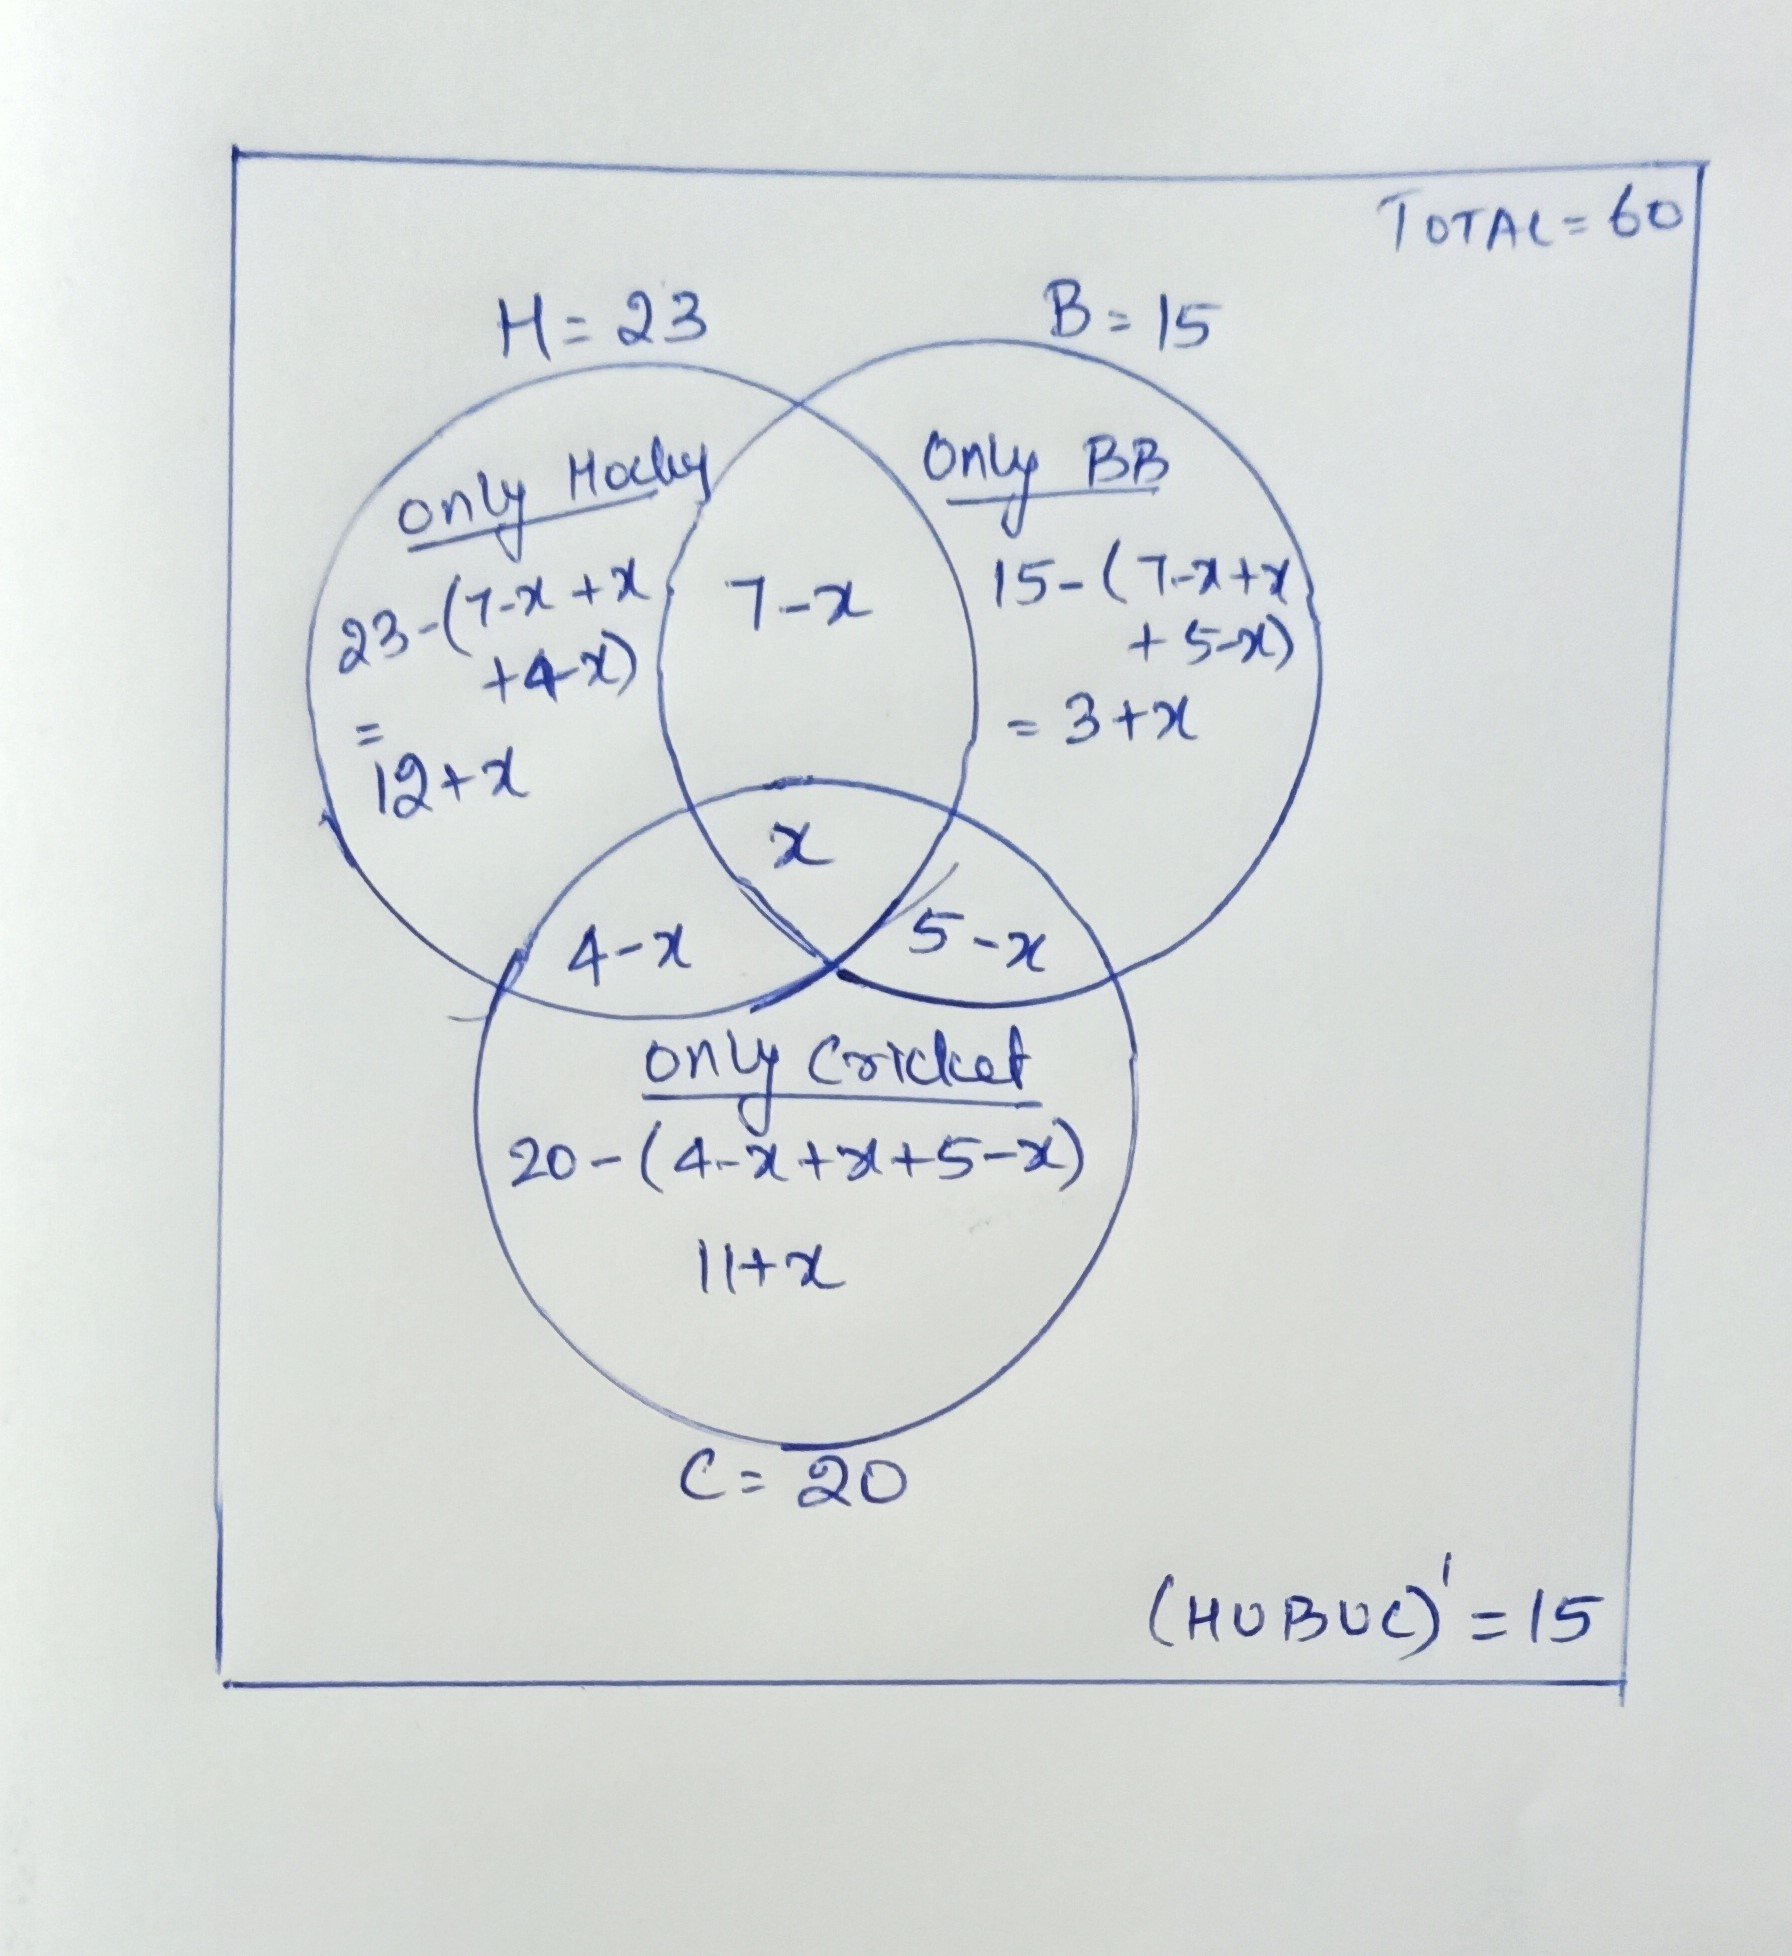 TOTAL = 60
H = 23
B = 15
only Hocky
23-(7-x+x
+4-x)
=
12+x
7-x
Only BB
15-(7-x+x
+5-x)
= 3+x
x
4-x
5-x
only Cricket
20-(4-x+x+5-x)
11+x
C = 20
(HUBUC)' = 15